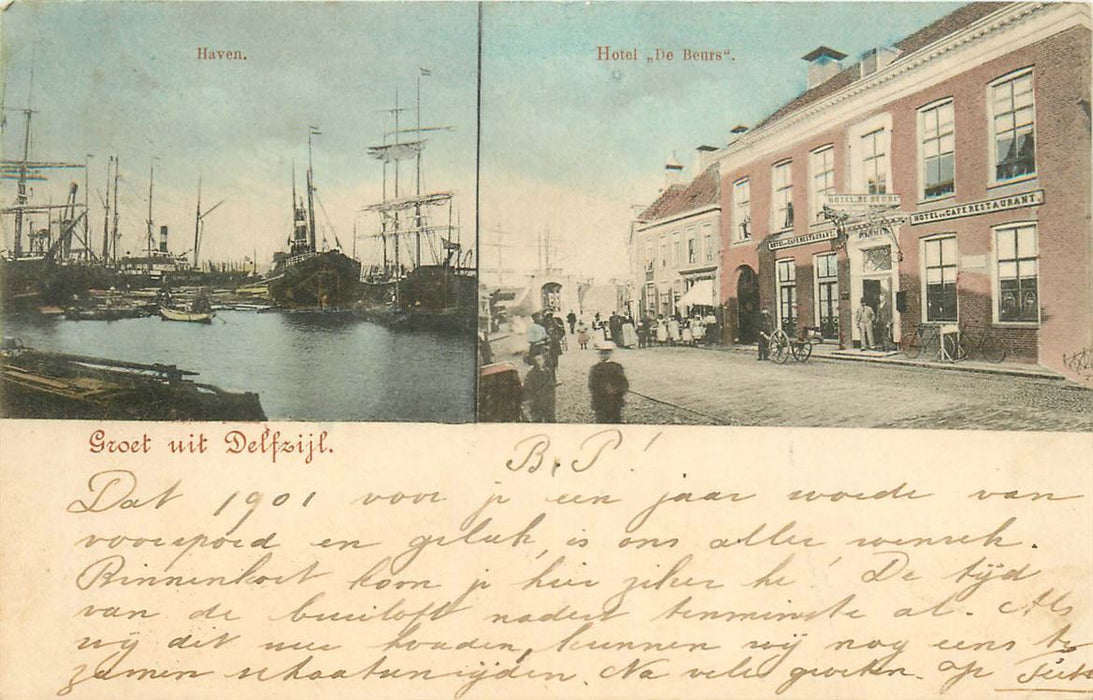 Haven.
Hotel „De Beurs".
HOTEL DE BEURS
HOTEL EN CAFÉ RESTAURANT.
HOTEL EN CAFÉ RESTAURANT.
Groet uit Delfzijl.
B. P!
Dat 1901 voor je een jaar worde van
voorspoed en geluk, is ons aller wensch.
Binnenkort kom je hier zeker hè! De tijd
van de bruiloft nadert tenminste al. Als
wij dit weer houden, kunnen wij nog eens te
zamen schaatsenrijden. Na vele groeten. Op